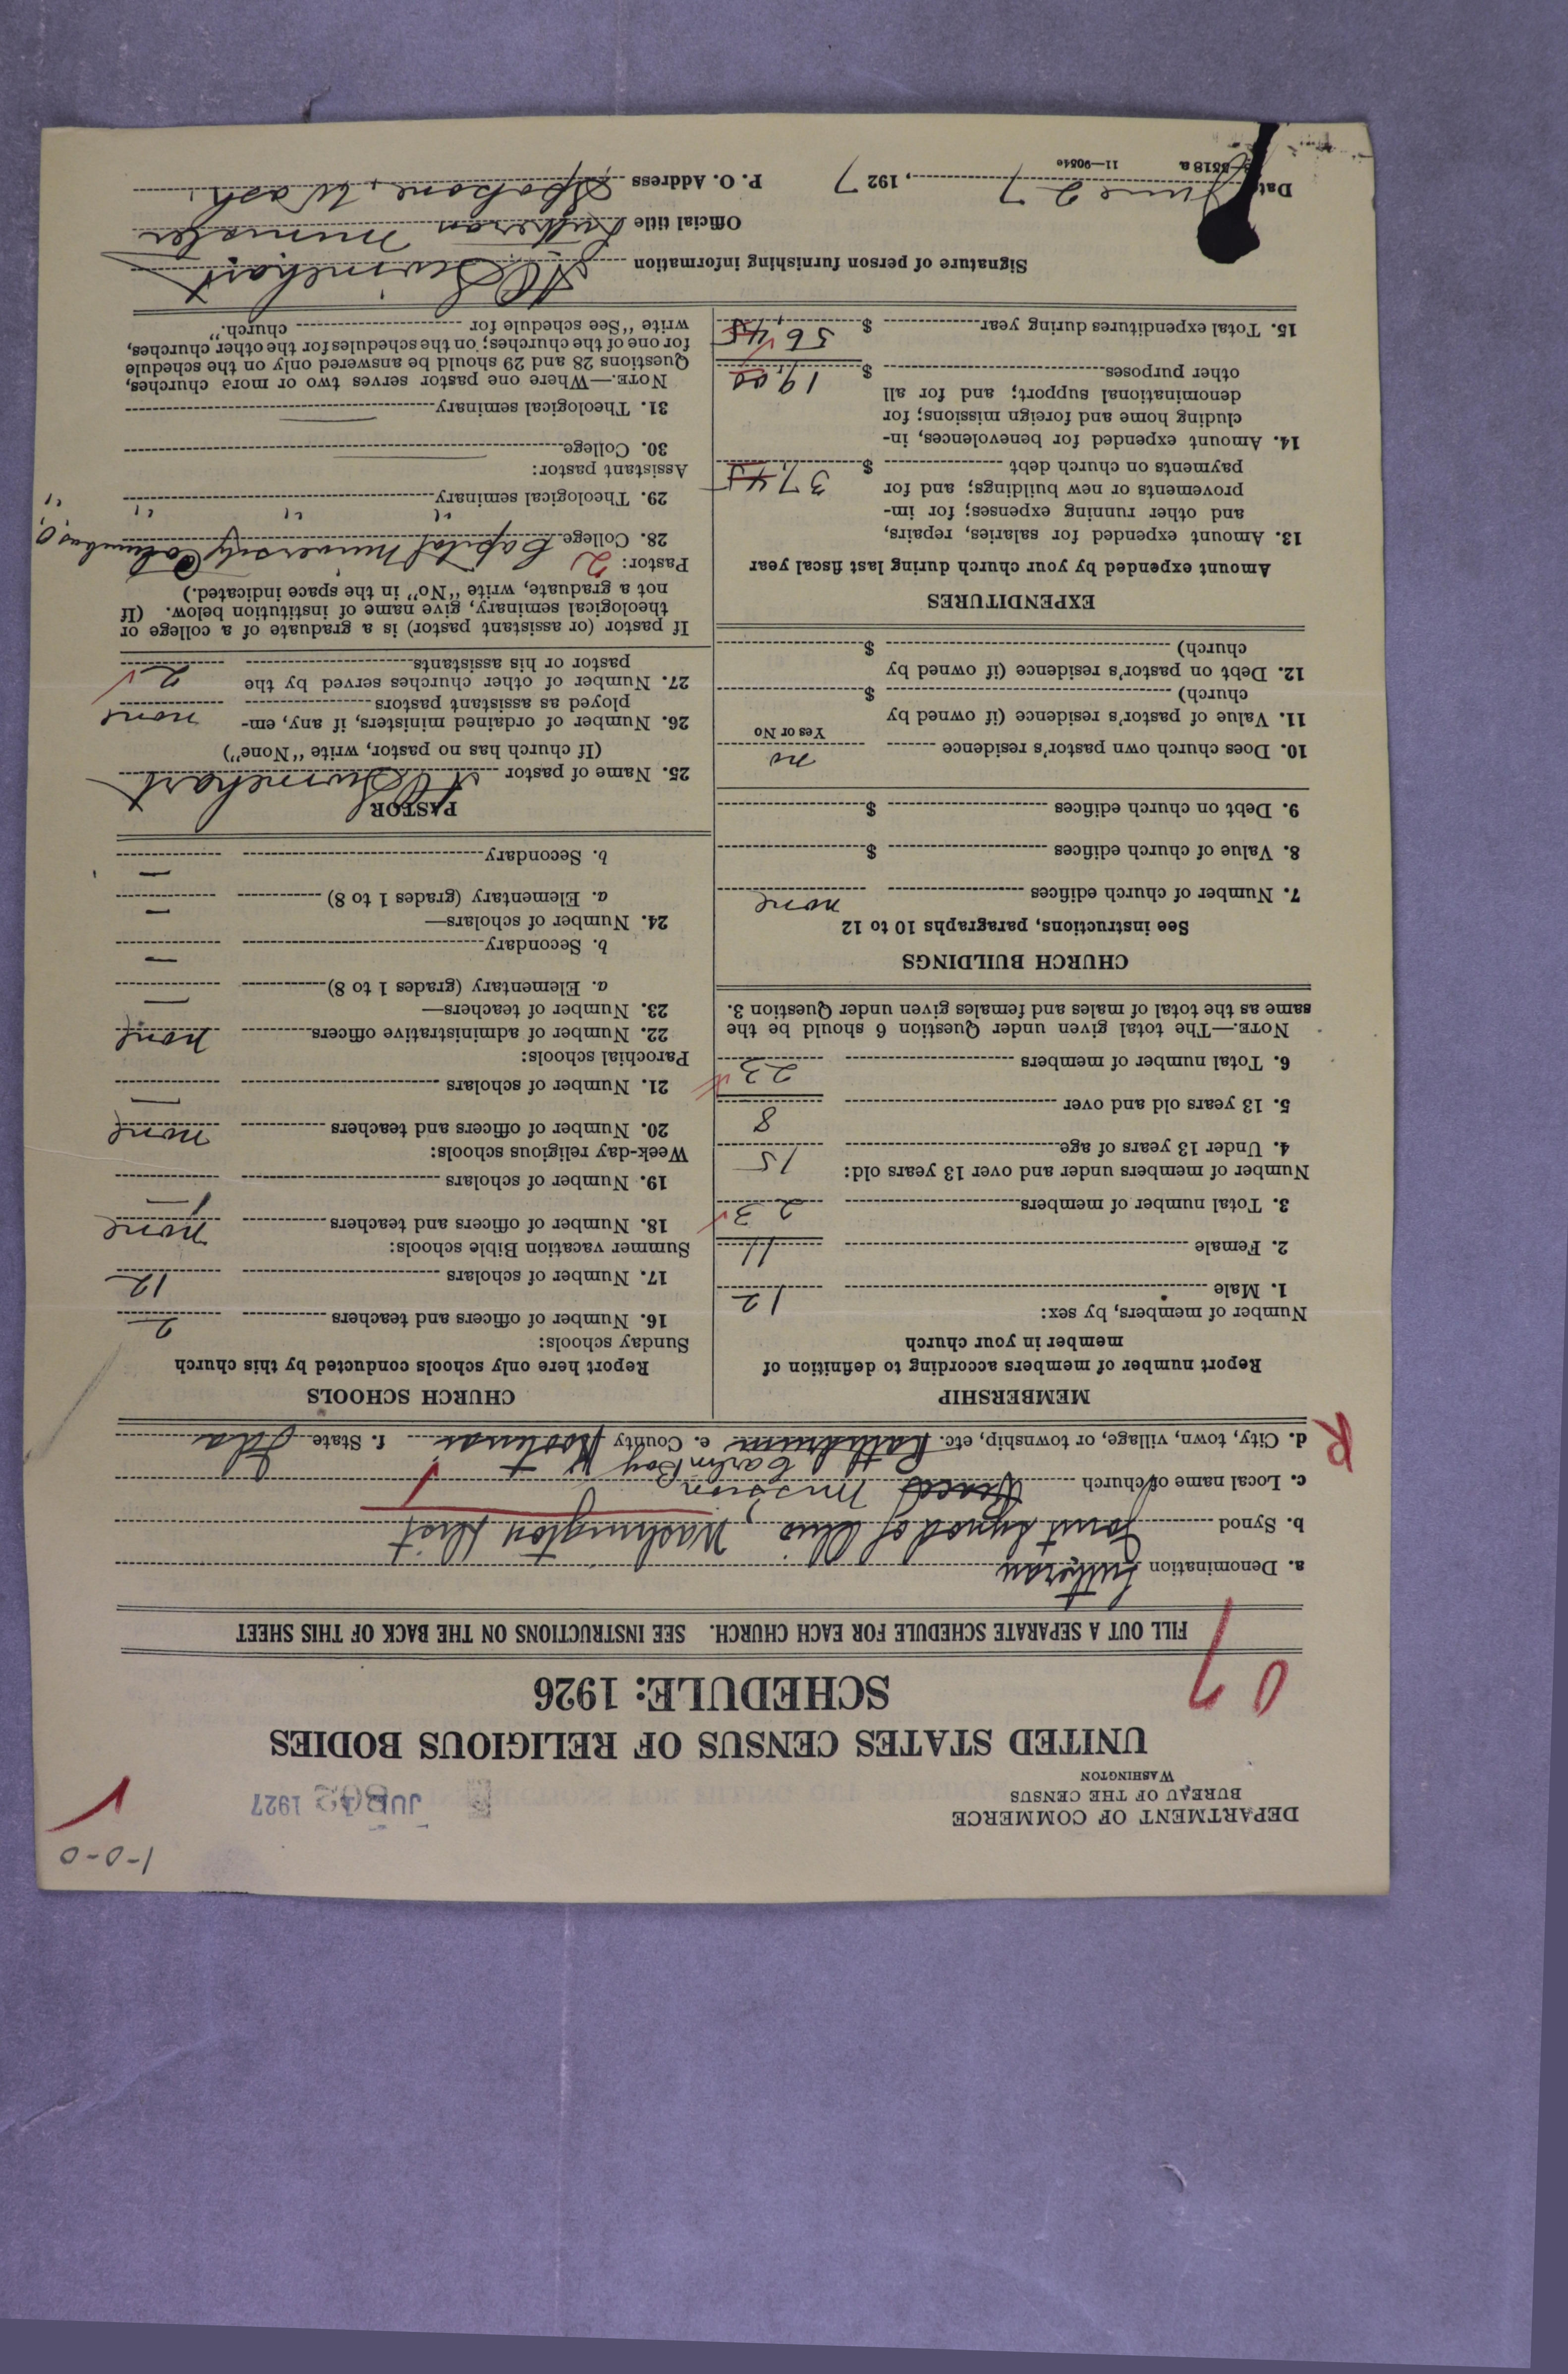 1-0-0
DEPARTMENT OF COMMERCE
BUREAU OF THE CENSUS
WASHINGTON
1927
UNITED STATES CENSUS OF RELIGIOUS BODIES
SCHEDULE: 1926
07
FILL OUT A SEPARATE SCHEDULE FOR EACH CHURCH. SEE INSTRUCTIONS ON THE BACK OF THIS SHEET
a. Denomination Lutheran
b. Synod Joint Synod of Ohio, Washington Dist
c. Local name of church Mission
d. City, town, village, or township, etc. Rathdrum e. County Kootenai f. State Ida
R
MEMBERSHIP
Report number of members according to definition of
member in your church
Number of members, by sex:
1. Male 12
2. Female 11
3. Total number of members 23
Number of members under and over 13 years old:
4. Under 13 years of age 15
5. 13 years old and over 8
6. Total number of members 23
NOTE.—The total given under Question 6 should be the
same as the total of males and females given under Question 3.
CHURCH BUILDINGS
See instructions, paragraphs 10 to 12
7. Number of church edifices none
8. Value of church edifices $
9. Debt on church edifices $
10. Does church own pastor's residence no
Yes or No
11. Value of pastor's residence (if owned by
church) $
12. Debt on pastor's residence (if owned by
church) $
EXPENDITURES
Amount expended by your church during last fiscal year
13. Amount expended for salaries, repairs,
and other running expenses; for im-
provements or new buildings; and for
payments on church debt $ 37.45
14. Amount expended for benevolences, in-
cluding home and foreign missions; for
denominational support; and for all
other purposes $ 19.00
15. Total expenditures during year $ 56.45
CHURCH SCHOOLS
Report here only schools conducted by this church
Sunday schools:
16. Number of officers and teachers 2
17. Number of scholars 12
Summer vacation Bible schools:
18. Number of officers and teachers none
19. Number of scholars —
Week-day religious schools:
20. Number of officers and teachers none
21. Number of scholars —
Parochial schools:
22. Number of administrative officers none
23. Number of teachers—
a. Elementary (grades 1 to 8) —
b. Secondary —
24. Number of scholars—
a. Elementary (grades 1 to 8) —
b. Secondary —
PASTOR
25. Name of pastor A C Swinehart
(If church has no pastor, write "None")
26. Number of ordained ministers, if any, em-
ployed as assistant pastors none
27. Number of other churches served by the
pastor or his assistants 2
If pastor (or assistant pastor) is a graduate of a college or
theological seminary, give name of institution below. (If
not a graduate, write "No" in the space indicated.)
Pastor: 2
28. College Capital University Columbus, O.
29. Theological seminary " " " "
Assistant pastor:
30. College
31. Theological seminary
NOTE.—Where one pastor serves two or more churches,
Questions 28 and 29 should be answered only on the schedule
for one of the churches; on the schedules for the other churches,
write "See schedule for church."
Signature of person furnishing information A C Swinehart
Official title Lutheran Minister
Date June 27, 1927 P. O. Address Spokane, Wash.
8518a 11—9054e